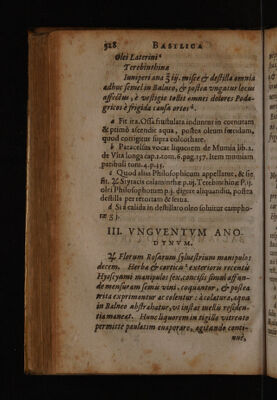 328 BASILICA
Olei Laterini
Terebinthinæ
Iuniperi ana ℥ ij. misce & destilla omnia
adhuc semel in Balneo, & postea vngatur locus
affectus, è vestigio tollit omnes dolores Poda-
gricos è frigida causa ortos.
a Fit ita. Ossa frustulata induntur in cornutam
& primò ascendit aqua, postea oleum fœtidum,
quod corrigitur supra colcothare.
b Paracelsus vocat liquorem de Mumia lib.2.
de Vita longa cap.2.tom.6.pag.157. Item mumiam
patibuli tom.4.p.35.
c Quod alias Philosophicum appellatur, & sic
fit. ℞ Styracis calaminthæ p.ij. Terebinthinæ P.ij.
olei Philosophorum p.j. digere aliquandiu, postea
destilla per retortam & serua.
d Si â calida in destillato oleo soluitur campho-
ræ ʒ j.
III. VNGVENTVM ANO-
DYNVM.
℞ Florum Rosarum syluestrium manipulos
decem. Herbæ & corticis exterioris recentis
Hyoscyami manipulos sex, concisis simul affun-
de mensuram semis vini, coquantur, & postea
trita exprimantur ac colentur: à colatura, aqua
in Balneo abstrahatur, vt instar mellis residen-
tia maneat. Hunc liquorem in tigillo vitreato
permitte paulatim euaporare, agitando conti-
nuè,